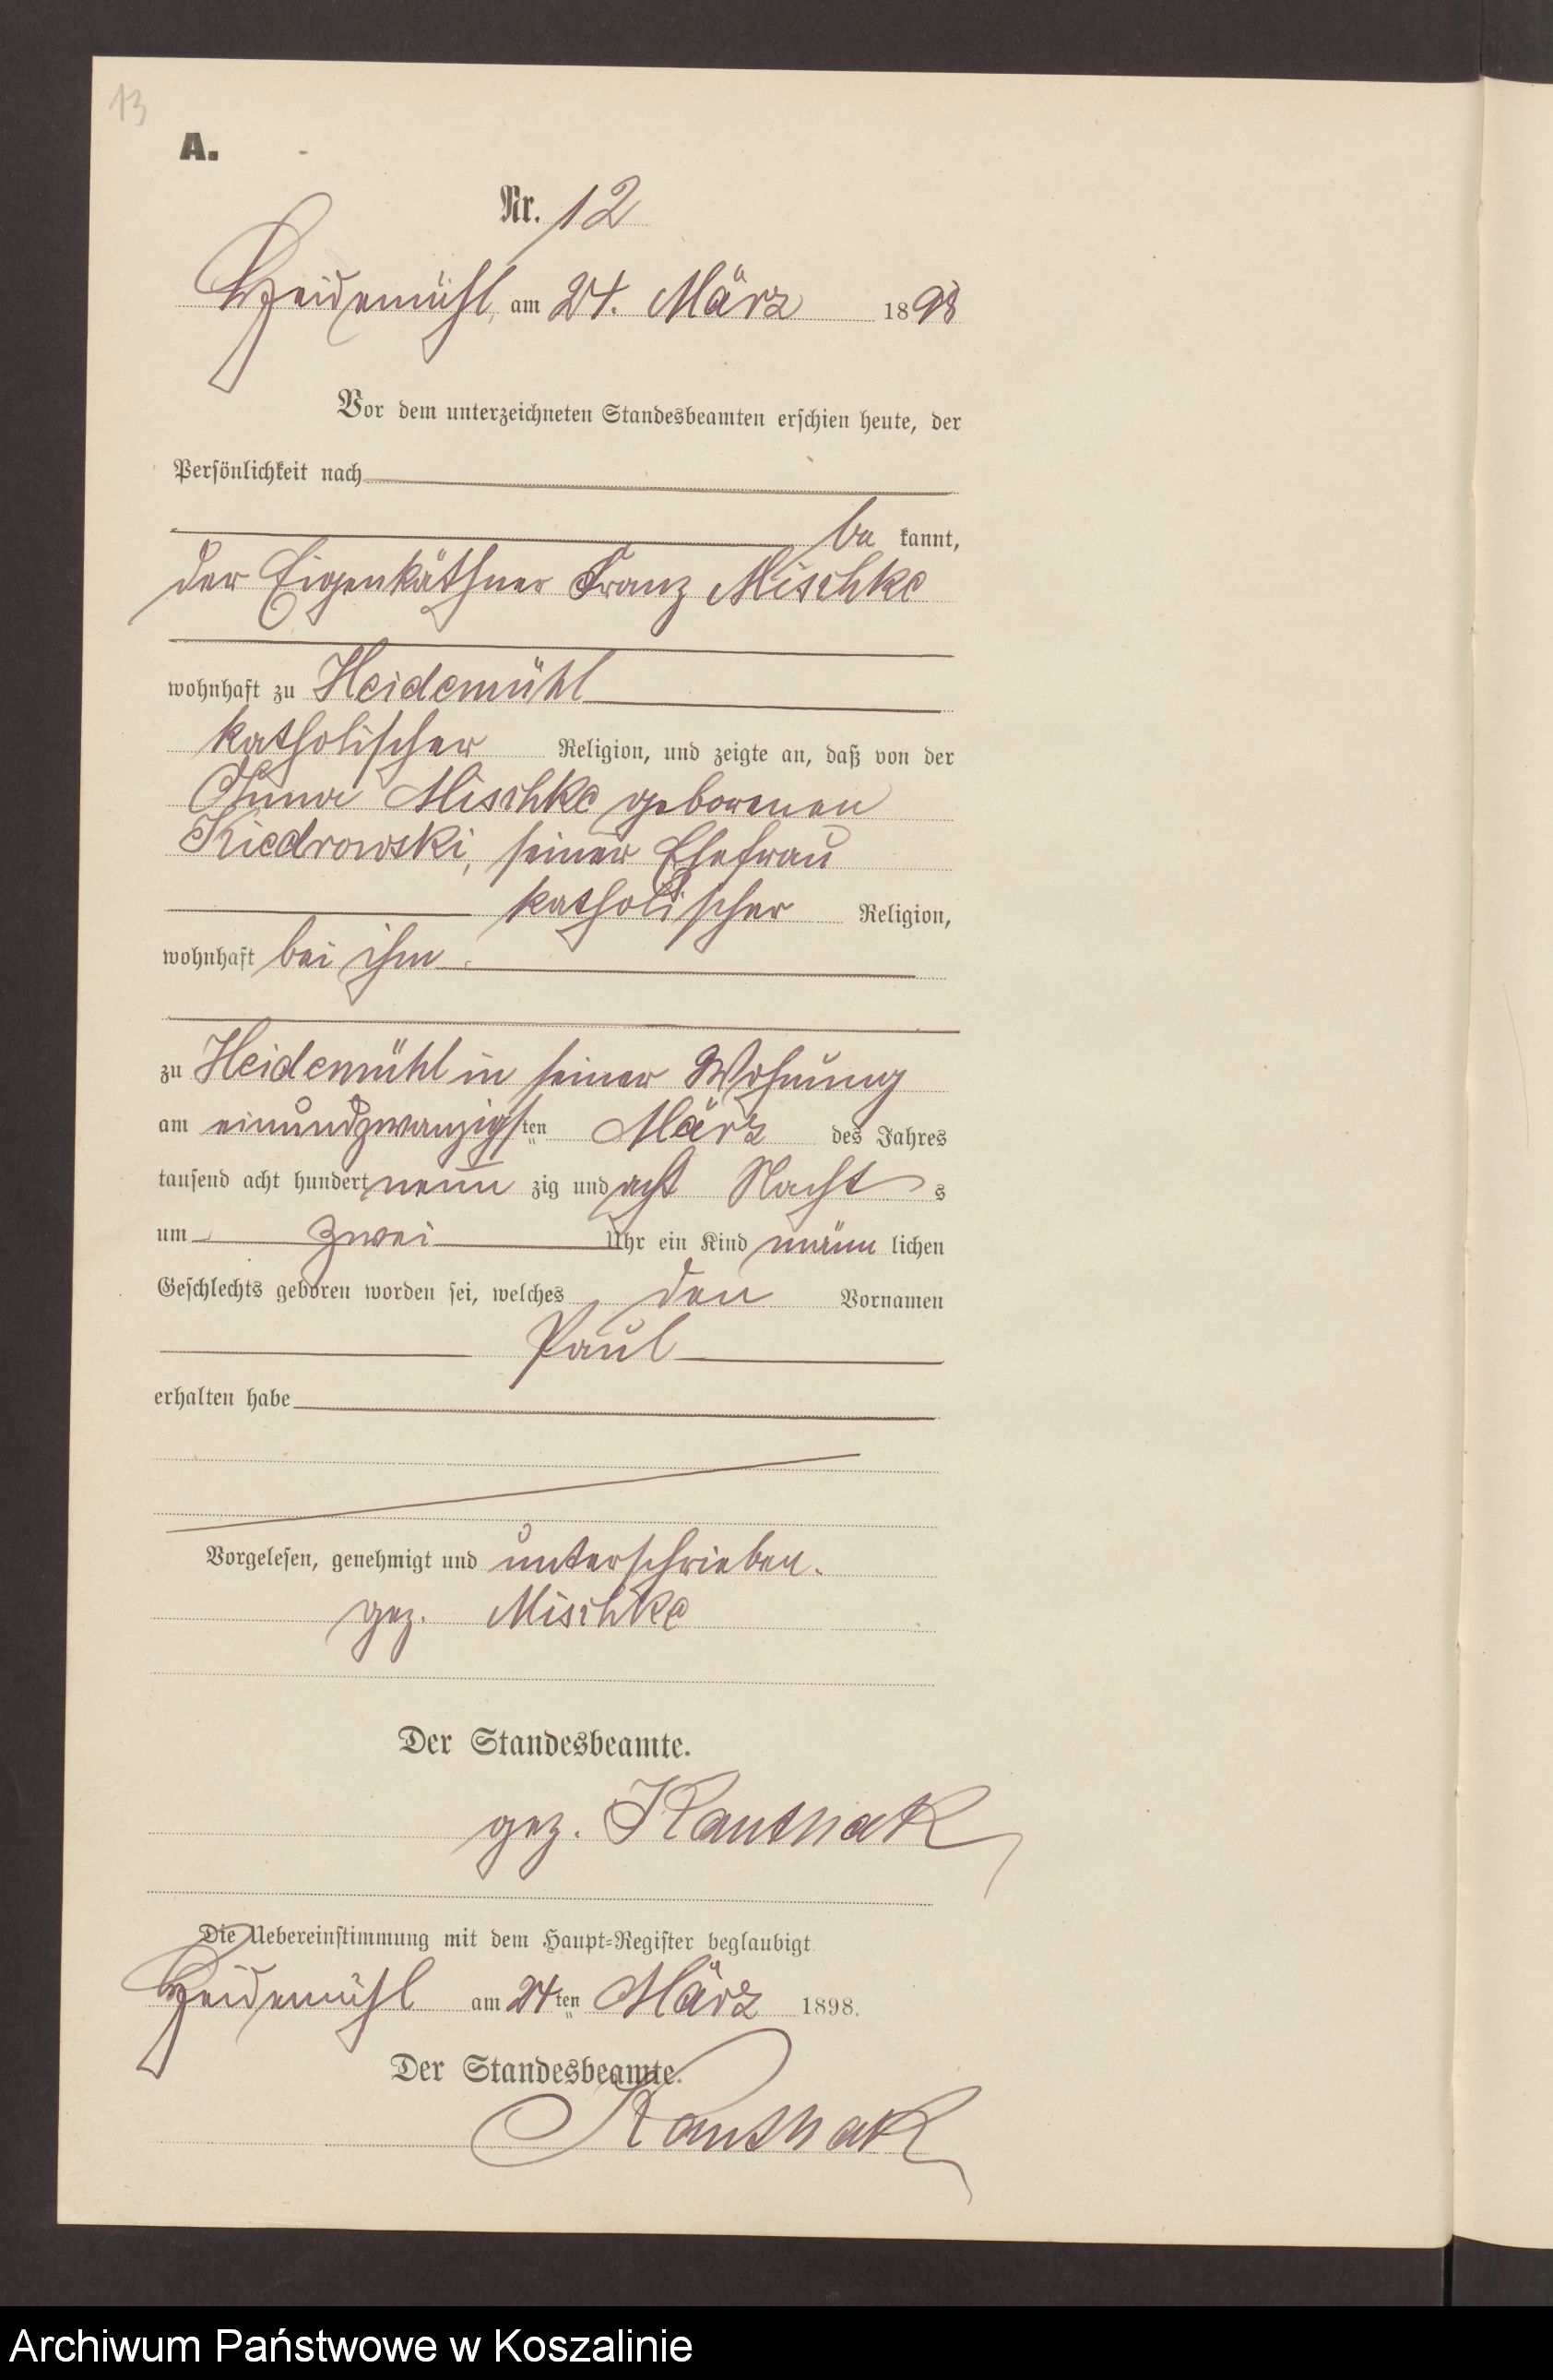 13
A.
Nr. 12
Heidemühl, am 24. März 1898
Vor dem unterzeichneten Standesbeamten erschien heute, der
Persönlichkeit nach
be kannt,
der Eigenkäthner Franz Mischke
wohnhaft zu Heidemühl
katholischer Religion, und zeigte an, daß von der
Anna Mischke geborenen
Kiedrowski, seiner Ehefrau
katholischer Religion,
wohnhaft bei ihm
zu Heidemühl in seiner Wohnung
am einundzwanzigsten März des Jahres
tausend acht hundert neun zig und acht Nachts
um zwei Uhr ein Kind männlichen
Geschlechts geboren worden sei, welches den Vornamen
Paul
erhalten habe
Vorgelesen, genehmigt und unterschrieben.
gez. Mischke
Der Standesbeamte.
gez. Kauthak
Die Uebereinstimmung mit dem Haupt-Register beglaubigt
Heidemühl am 24ten März 1898.
Der Standesbeamte.
Kauthak
Archiwum Państwowe w Koszalinie